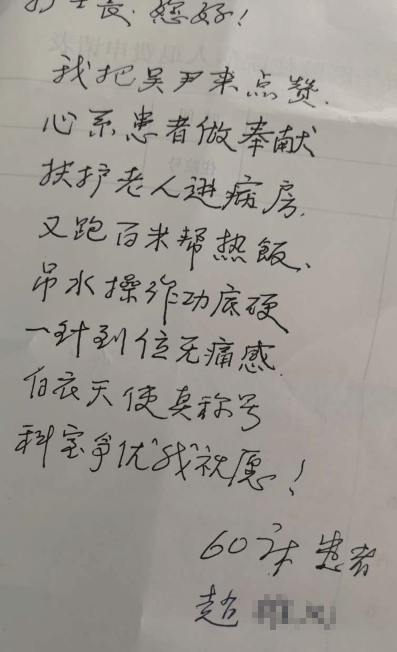 护士长:您好!
我把吴尹来点赞.
心系患者做奉献
扶护老人进病房.
又跑百米帮热飯、
吊水操作功底硬
一针到位无痛感.
白衣天使真称号
科室争优"我"祝愿!
60床患者
赵